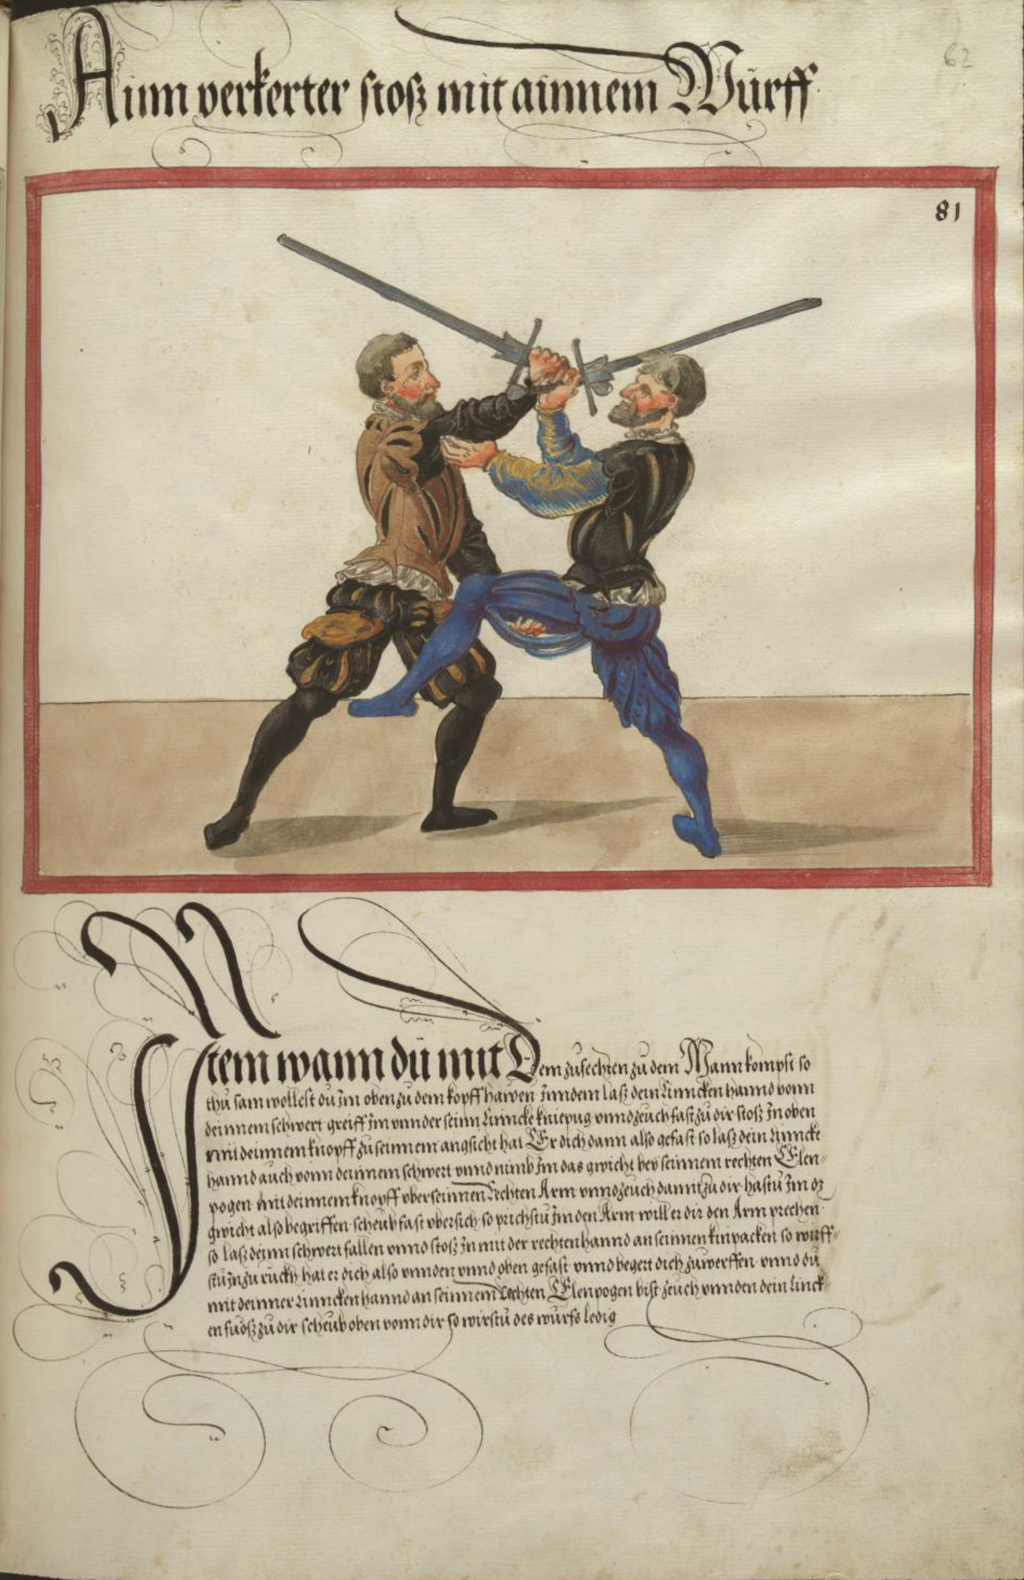 62
Ainn verkerter stosß mit ainnem Würff
81
Item wann dü mit Dem zufechten zu dem Mann kompst so
thu sam wollest du Im oben zu dem kopff hawen Inndem lasß dein Linncken hannd vonn
deinnem schwert greiff Im vnnder seinn Linncke kniepug vnnd zeuch fast zu dir stosß In oben
mit deinnem knopff zu seinnem angsicht hat Er dich dann also gefast so lasß dein Linncke
hannd auch vonn deinnem schwert vnnd nimb Im das gwicht bey seinnem rechten Elen„
pogen mit deinnem knopff vber seinnen Rechten Arm vnnd zeuch dannt zu dir hastu Im dz
gwicht also begriffen scheub fast vbersich so prichstu Im den Arm will er dir den Arm prechen
so lasß deinn schwert fallen vnnd stosß In mit der rechten hannd an seinnen kinpacken so wirff„
stu In zu ruckh hat er dich also vnnden vnnd oben gefast vnnd begert dich zuwerffen vnnd du
mit deinner Linncken hannd an seinnem Rechten Elenpogen bist zeuch vnnden dein Linck„
en fuosß zu dir scheub oben vonn dir so wirstu des wurfs ledig